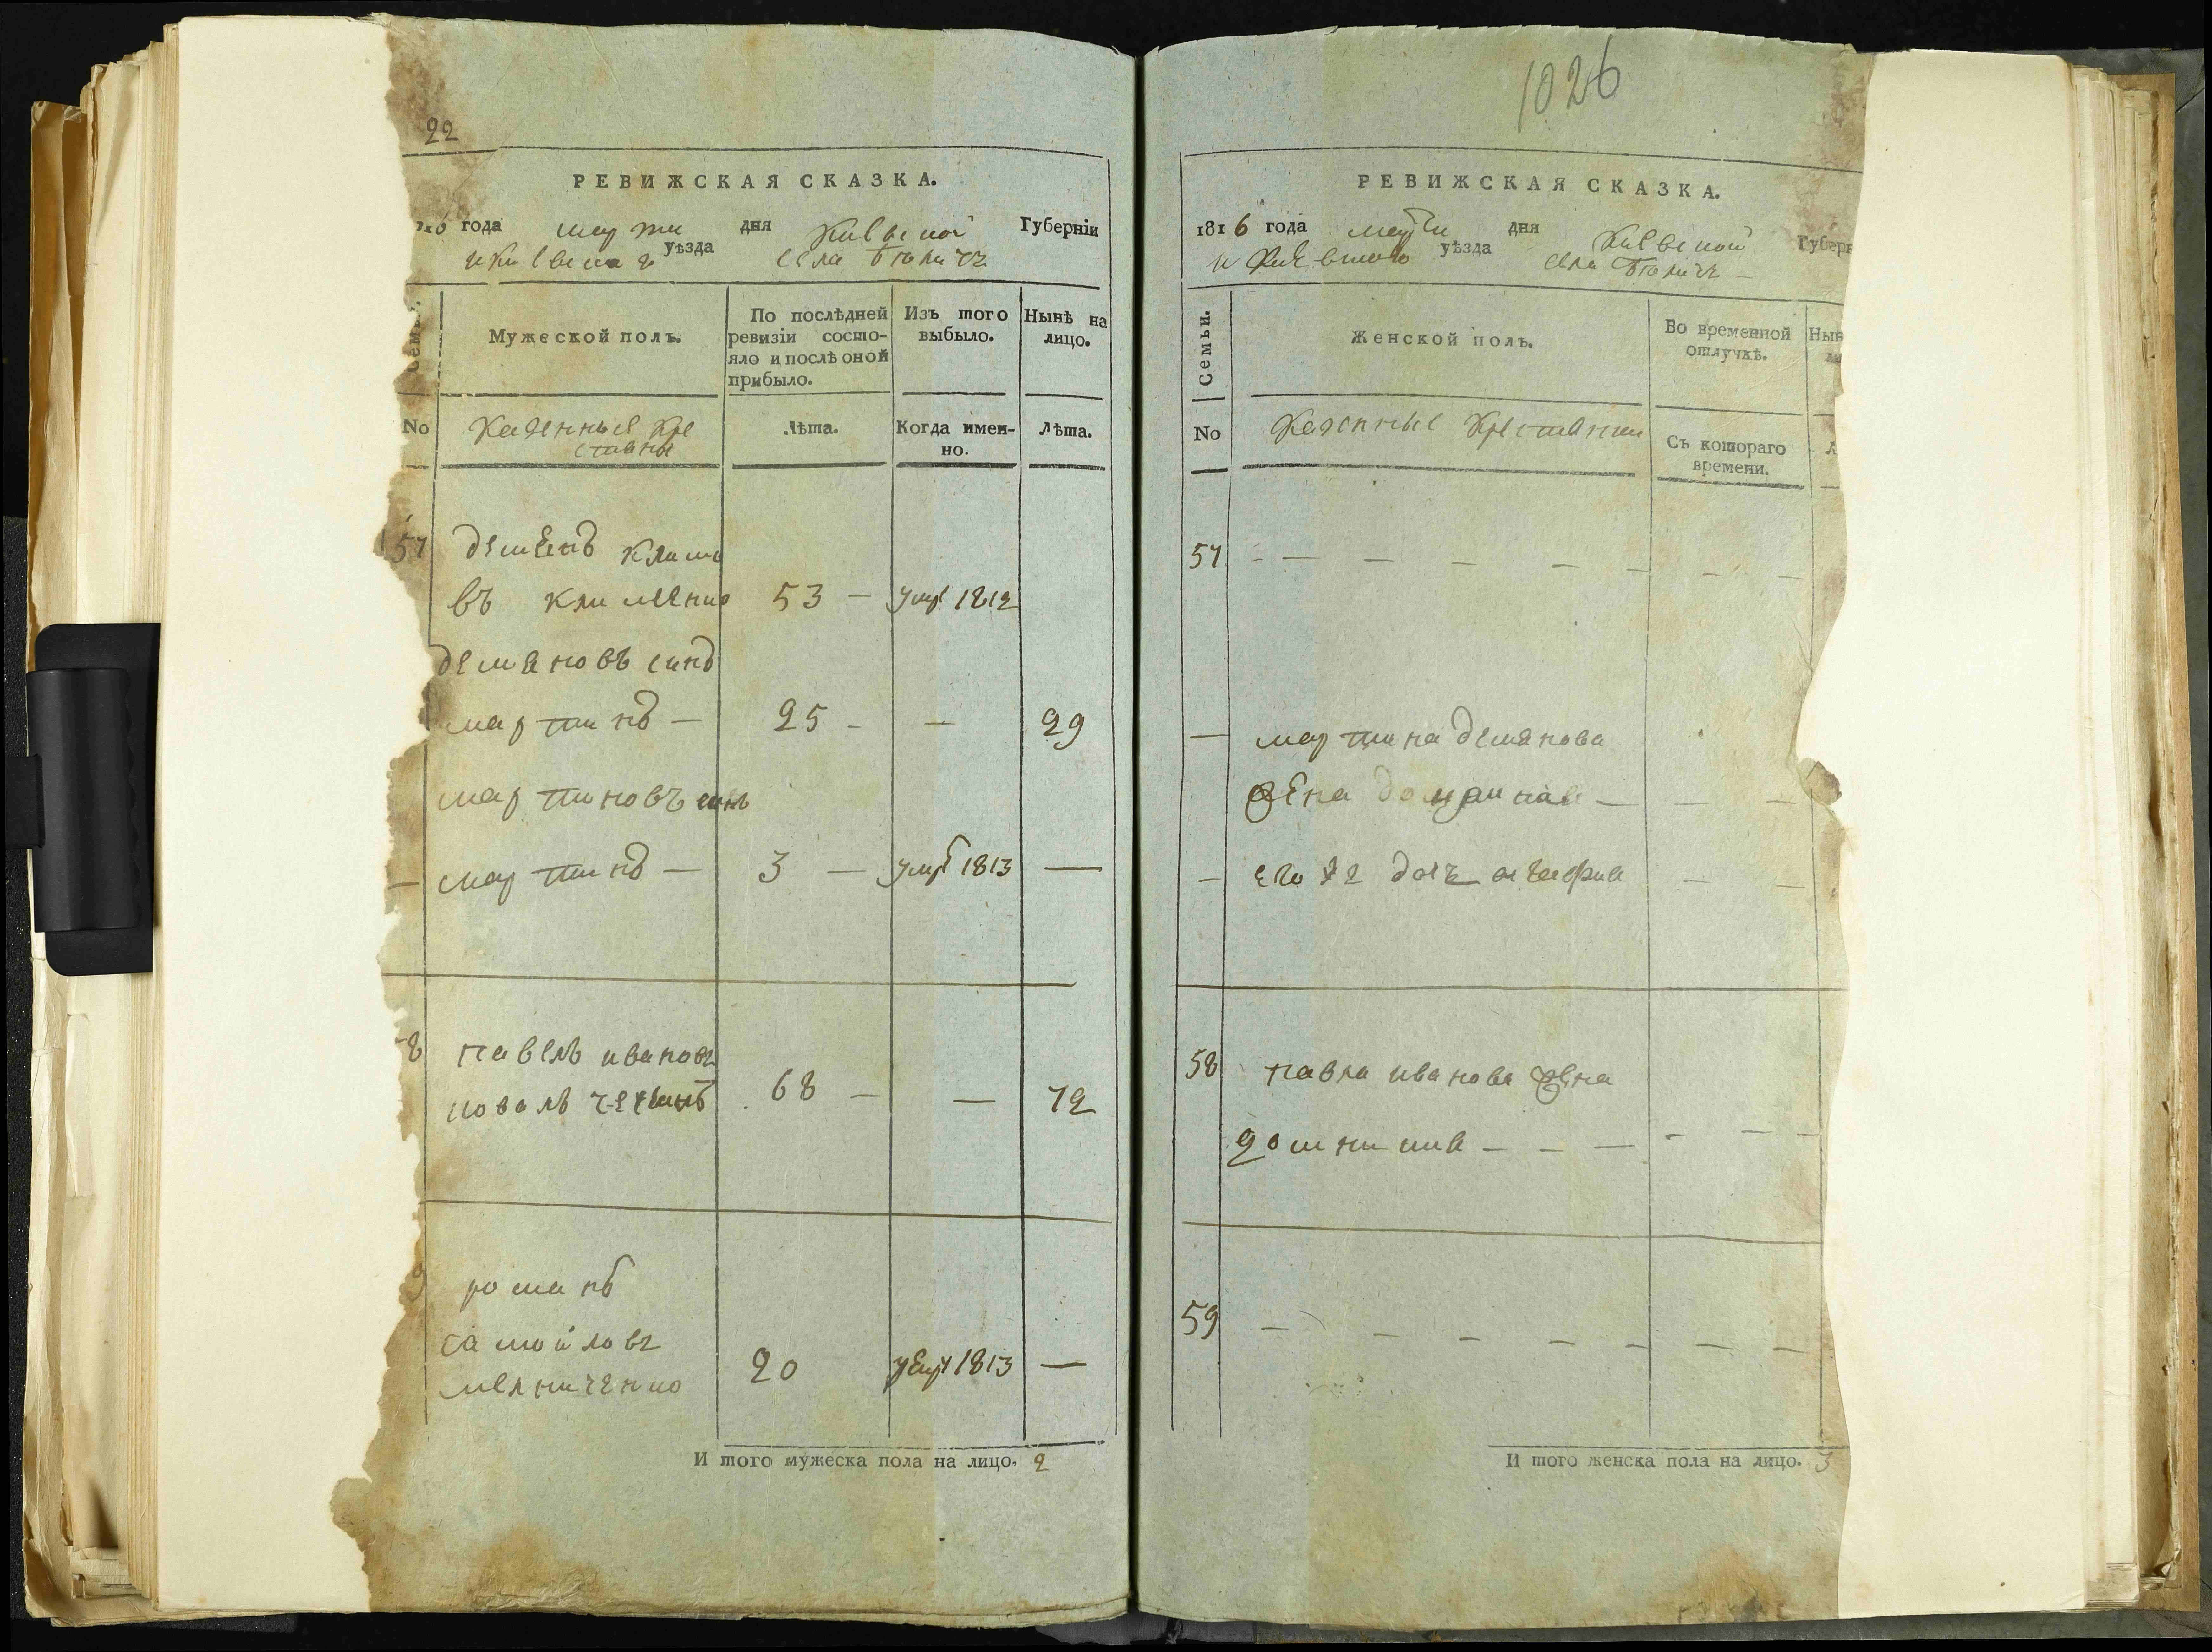 22
РЕВИЖСКАЯ СКАЗКА.
года марта дня Киевской Губерніи
и Киевскаго уѣзда села Бѣличъ
Мужеской полъ.
По послѣдней ревизіи состояло и послѣ оной прибыло.
Изъ того выбыло.
Нынѣ на лицо.
No
Казенные кре
стяны
Лѣта.
Когда именно.
Лѣта.
57 демянъ клімо
въ клименко 53 — умре 1812
демяновъ синъ
мартинъ — 25 — — 29
мартиновъ синъ
— мартинъ — 3 — умре 1813 —
8 павелъ ивановъ
68 — — 72
9 романъ
самойловъ
мелниченко 20 умре 1813 —
И того мужеска пола на лицо. 2
1026
РЕВИЖСКАЯ СКАЗКА.
1816 года марта дня Киевской Губерн
и Киевского уѣзда села Бѣличъ —
Семьи.
Женской полъ.
Во временной отлучкѣ.
Нын
No
Казенные крестянки
Съ котораго времени.
57 — — — — — — — —
— мартина демянова
жена — — —
— его 2 дочь — —
58 павла иванова жена
— — — — — —
59 — — — — — — —
И того женска пола на лицо. 3